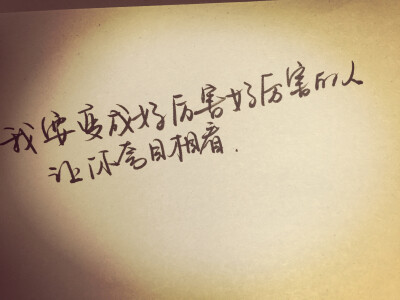 我要变成好厉害好厉害的人
让你夸目相看.